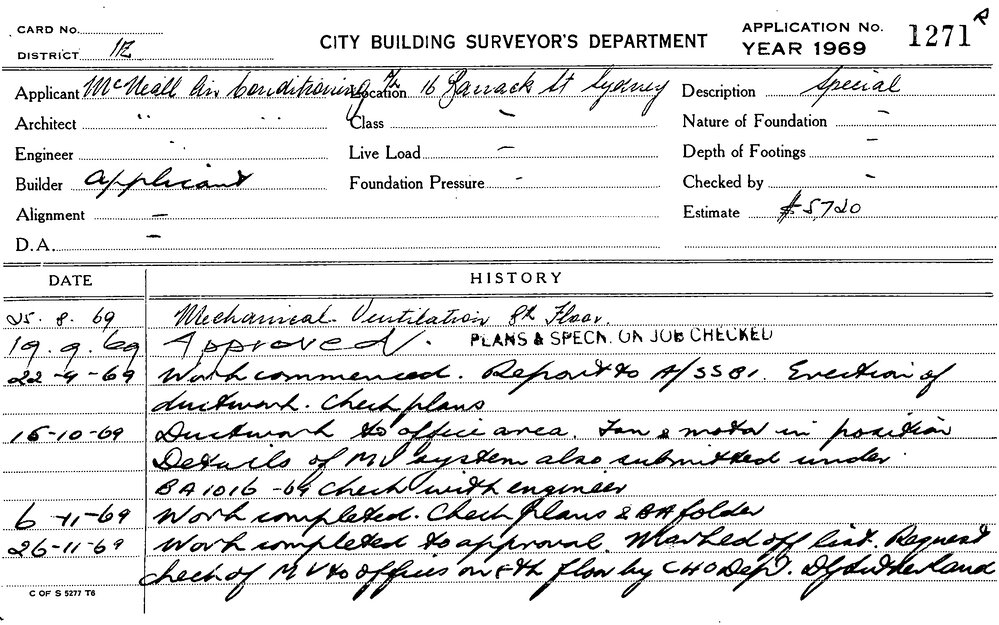 CARD No. CITY BUILDING SURVEYOR'S DEPARTMENT APPLICATION No. 1271 R
DISTRICT YEAR 1969
Applicant McNeill Air Conditioning P/L Location 16 Barrack St Sydney Description Special
Architect " " Class - Nature of Foundation -
Engineer " Live Load - Depth of Footings -
Builder Applicant Foundation Pressure - Checked by -
Alignment - Estimate $5,720
D.A. -
DATE HISTORY
25. 8. 69 Mechanical Ventilation 8th Floor.
19. 9. 69 Approved. PLANS & SPECN. ON JOB CHECKED
22-9-69 Work commenced. Report to A/SSBI. Erection of
ductwork. Check plans
15-10-69 Ductwork to office area. Fan & motor in position
Details of MV system also submitted under
BA 1016-69 Check with engineer
6-11-69 Work completed. Check plans & BA folder
26-11-69 Work completed to approval. Marked off list. Request
check of MV to offices on 8th floor by CHO Dept. DJ Sutherland
C OF S 5277 T6